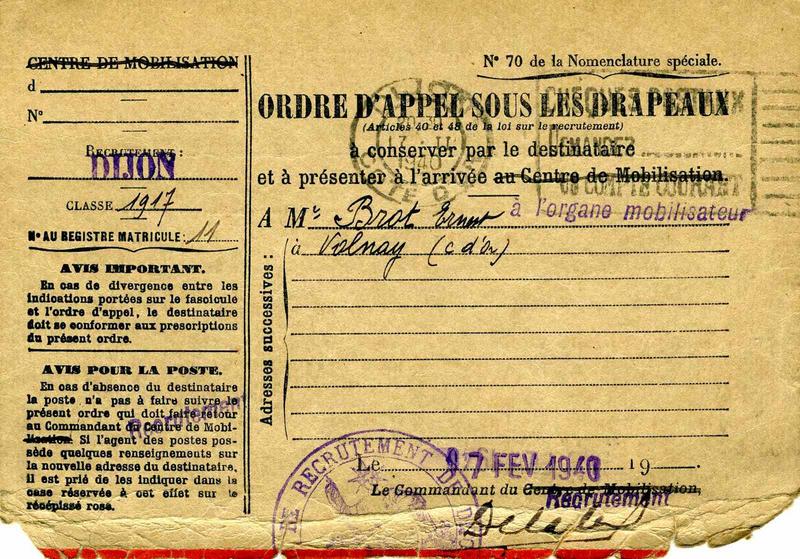 CENTRE DE MOBILISATION
d
N°
RECRUTEMENT :
DIJON
CLASSE 1917
N° AU REGISTRE MATRICULE : 11
AVIS IMPORTANT.
En cas de divergence entre les
indications portées sur le fascicule
et l'ordre d'appel, le destinataire
doit se conformer aux prescriptions
du présent ordre.
AVIS POUR LA POSTE.
En cas d'absence du destinataire
la poste n'a pas à faire suivre le
présent ordre qui doit faire retour
au Commandant du Centre de Mobi-
lisation. Si l'agent des postes pos-
sède quelques renseignements sur
la nouvelle adresse du destinataire,
il est prié de les indiquer dans la
case réservée à cet effet sur le
récépissé rose.
Recrutement
N° 70 de la Nomenclature spéciale.
ORDRE D'APPEL SOUS LES DRAPEAUX
(Articles 40 et 48 de la loi sur le recrutement)
à conserver par le destinataire
et à présenter à l'arrivée au Centre de Mobilisation.
à l'organe mobilisateur
A Mr Brot Ernest
à Volnay (C d'Or)
Adresses successives :
DIJON
7 II
1940
CHEQUES POSTAUX
DEMANDER
COMPTE COURANT
RECRUTEMENT DE
Le 7 FEV 1940 19
Le Commandant du Centre de Mobilisation,
Recrutement